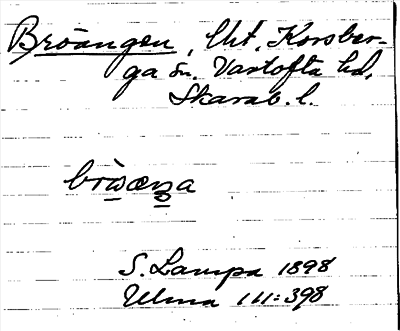 Broängen, Uht, Korsber-
ga sn. Vartofta hd,
Skarab. l.
bròæŋa
S. Lampa 1898
Ulma 111:398